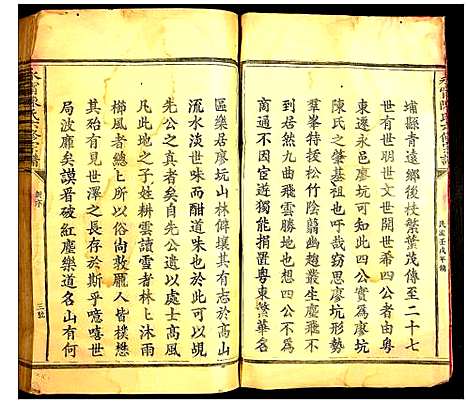 埔縣青遠鄉後枝繁葉茂傳至二十七
世有世明世文世開世希四公者由粵
東遷永邑廖坑可知此四公實爲廖坑
陳氏之肇基祖也吁哉窃思廖坑形勢
羣峯特挺松竹陰翳幽趣叢生慶飛不
到居然九曲飛雲勝地也想四公不爲
商通不因宦遊獨能指揮粵東繁華名
區樂居廖坑山林俾壤其有志於高山
流水淡世味而甜道味也於此可以見
先公之真道矣自先公遺以處士高風
凡此地之子姓耕雲讀雪者林上沐雨
櫛風者總上所云尚敦龐人皆樸懋
甚矣有見世澤之長存於斯乎噫嘻世
局波靡矣謨晋破紅塵樂道名山有何
三